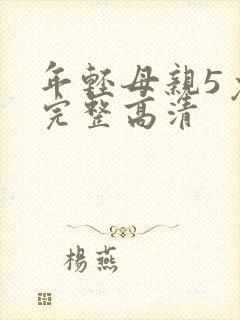 年輕母親5
完整高清
楊燕